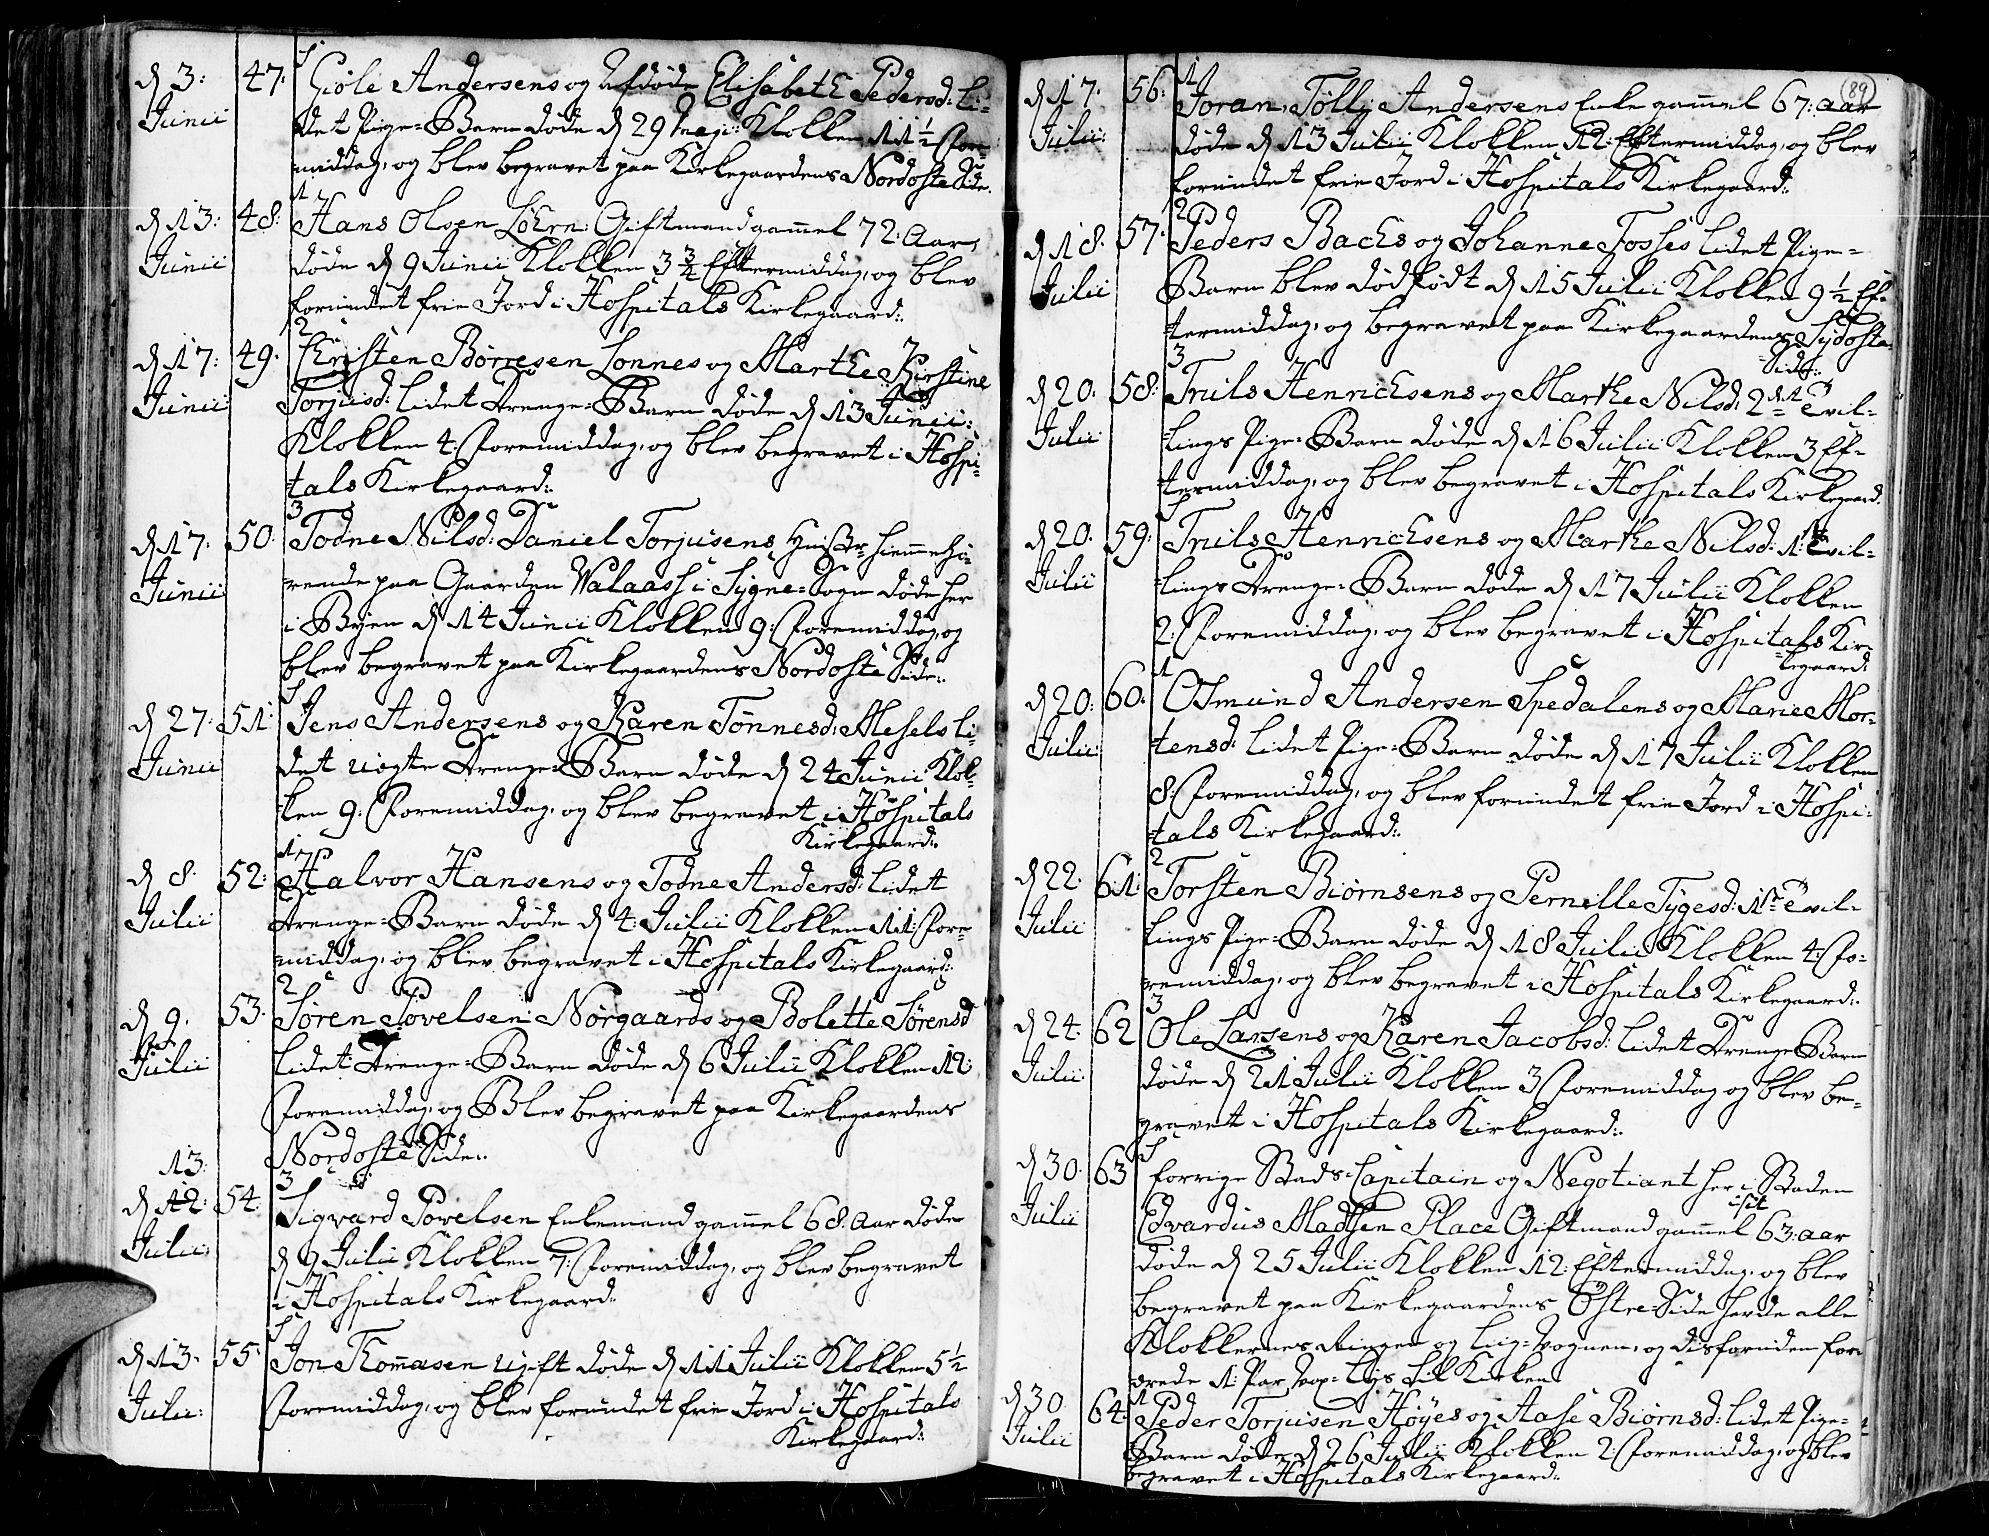 d 3: 47. Giöle Andersens og afdøde Elisabeth Pedersd: Li-
Junii det Pige-Barn døde d 29 Maji: Klokken 11½ For-
middag, og blev begravet paa Kirkegaardens Nordoste Side.
d 13: 48: Hans Olsen Giftmand gammel 72: Aar,
Junii døde d 9 Junii Klokken 3¾ Eftermiddag, og blev
forundet frie Jord i Hospitals Kirkegaard:
d 17: 49. Christen Börresen Lonnes og Marthe Kirstine
Junii Torjusd: lidet Drenge-Barn døde d 13 Junii:
Klokken 4 Foremiddag, og blev begravet i Hospi-
tals Kirkegaard:
d 17: 50. Todne Nilsd: Daniel Torjusens hiemmehö-
Junii rende paa Gaarden Valaas i Sygne-Sogn døde her
i Byen d 14 Junii Klokken 9: Foremiddag, og
blev begravet paa Kirkegaardens Nordoste Side:
d 27. 51: Jens Andersens og Karen Tönnesd: Mesels Li-
Junii det uægte Drenge-Barn døde d 24 Junii Klok-
ken 9: Foremiddag, og blev begravet i Hospitals
Kirkegaard:
d 8. 52: Halvor Hansens og Todne Andersd: lidet
Julii Drenge-Barn døde d 4. Julii Klokken 11: Fore-
middag, og blev begravet i Hospitals Kirkegaard:
d 9. 53. Sören Povelsen Nörgaards og Bolette Sörensd
Julii lidet Drenge-Barn døde d 6 Julii Klokken 12:
Foremiddag, og Blev begravet paa Kirkegaardens
Nordoste Side:
13:
d 12: 54. Sigvard Povelsen Enkemand gammel 68: Aar døde
Julii d 9 Julii Klokken 7: Foremiddag, og blev begravet
i Hospitals Kirkegaard:
d 13. 55. Jon Thomasen ugift døde d 11 Julii Klokken 5½
Julii: Foremiddag, og blev forundet frie Jord i Hospitals
Kirkegaard:
89
d 17. 56: Joran, Tollj Andersens Enke gammel 67: Aar
Julii: døde d 13 Julii Klokken 12: Eftermiddag, og blev
forundet frie Jord i Hospitals Kirkegaard:
d 18. 57. Peders Bachs og Johanne Fosses lidet Pige-
Julii Barn blev dødfødt d 15 Julii Klokken 9½ Ef-
termiddag, og begravet paa Kirkegaardens Sydoste
Side:
d 20. 58: Truls Henrichsens og Marthe Nilsd: 2den Tvil-
Julii lings Pige-Barn døde d 16 Julii Klokken 3 Ef-
termiddag, og blev begravet i Hospitals Kirkegaard.
d 20. 59: Truls Henrichsens og Marthe Nilsd: 1te Tvil-
Julii lings Drenge-Barn døde d 17 Julii Klokken
2: Foremiddag, og blev begravet i Hospitals Kir-
kegaard:
d 20: 60. Osmund Andersen Spedalens og Marie Mor-
Julii tensd: lidet Pige-Barn døde d 17 Julii Klokken
8: Foremiddag, og blev forundet frie Jord i Hospi-
tals Kirkegaard:
d 22. 61: Torsten Biörnsens og Pernille Tygesd: 1te Tvil-
Julii lings Pige-Barn døde d 18 Julii Klokken 4: Fo-
remiddag, og blev begravet i Hospitals Kirkegaard:
d 24. 62 Ole Larsens og Karen Jacobsd: lidet Drenge Barn
Julii døde d 21 Julii Klokken 3 Foremiddag og blev be-
gravet i Hospitals Kirkegaard:
d 30. 63 forrige Stads-Capitain og Negotiant her i Staden
Julii Edvardus Madssen Place Giftmand gammel 63: aar
døde d 25 Julii Klokken 12: Eftermiddag, og blev
begravet paa Kirkegaardens Östre-Side havde alle
Klokkernes Ringen og Liig-Vognen, og desforuden for-
ærede 1: Par Vox-Lys til Kirken
d 30 64. Peder Torjusen Höyes og Aase Biörnsd: lidet Pige-
Julii Barn døde d 26 Julii Klokken 2: Foremiddag, og blev
begravet i Hospitals Kirkegaard: